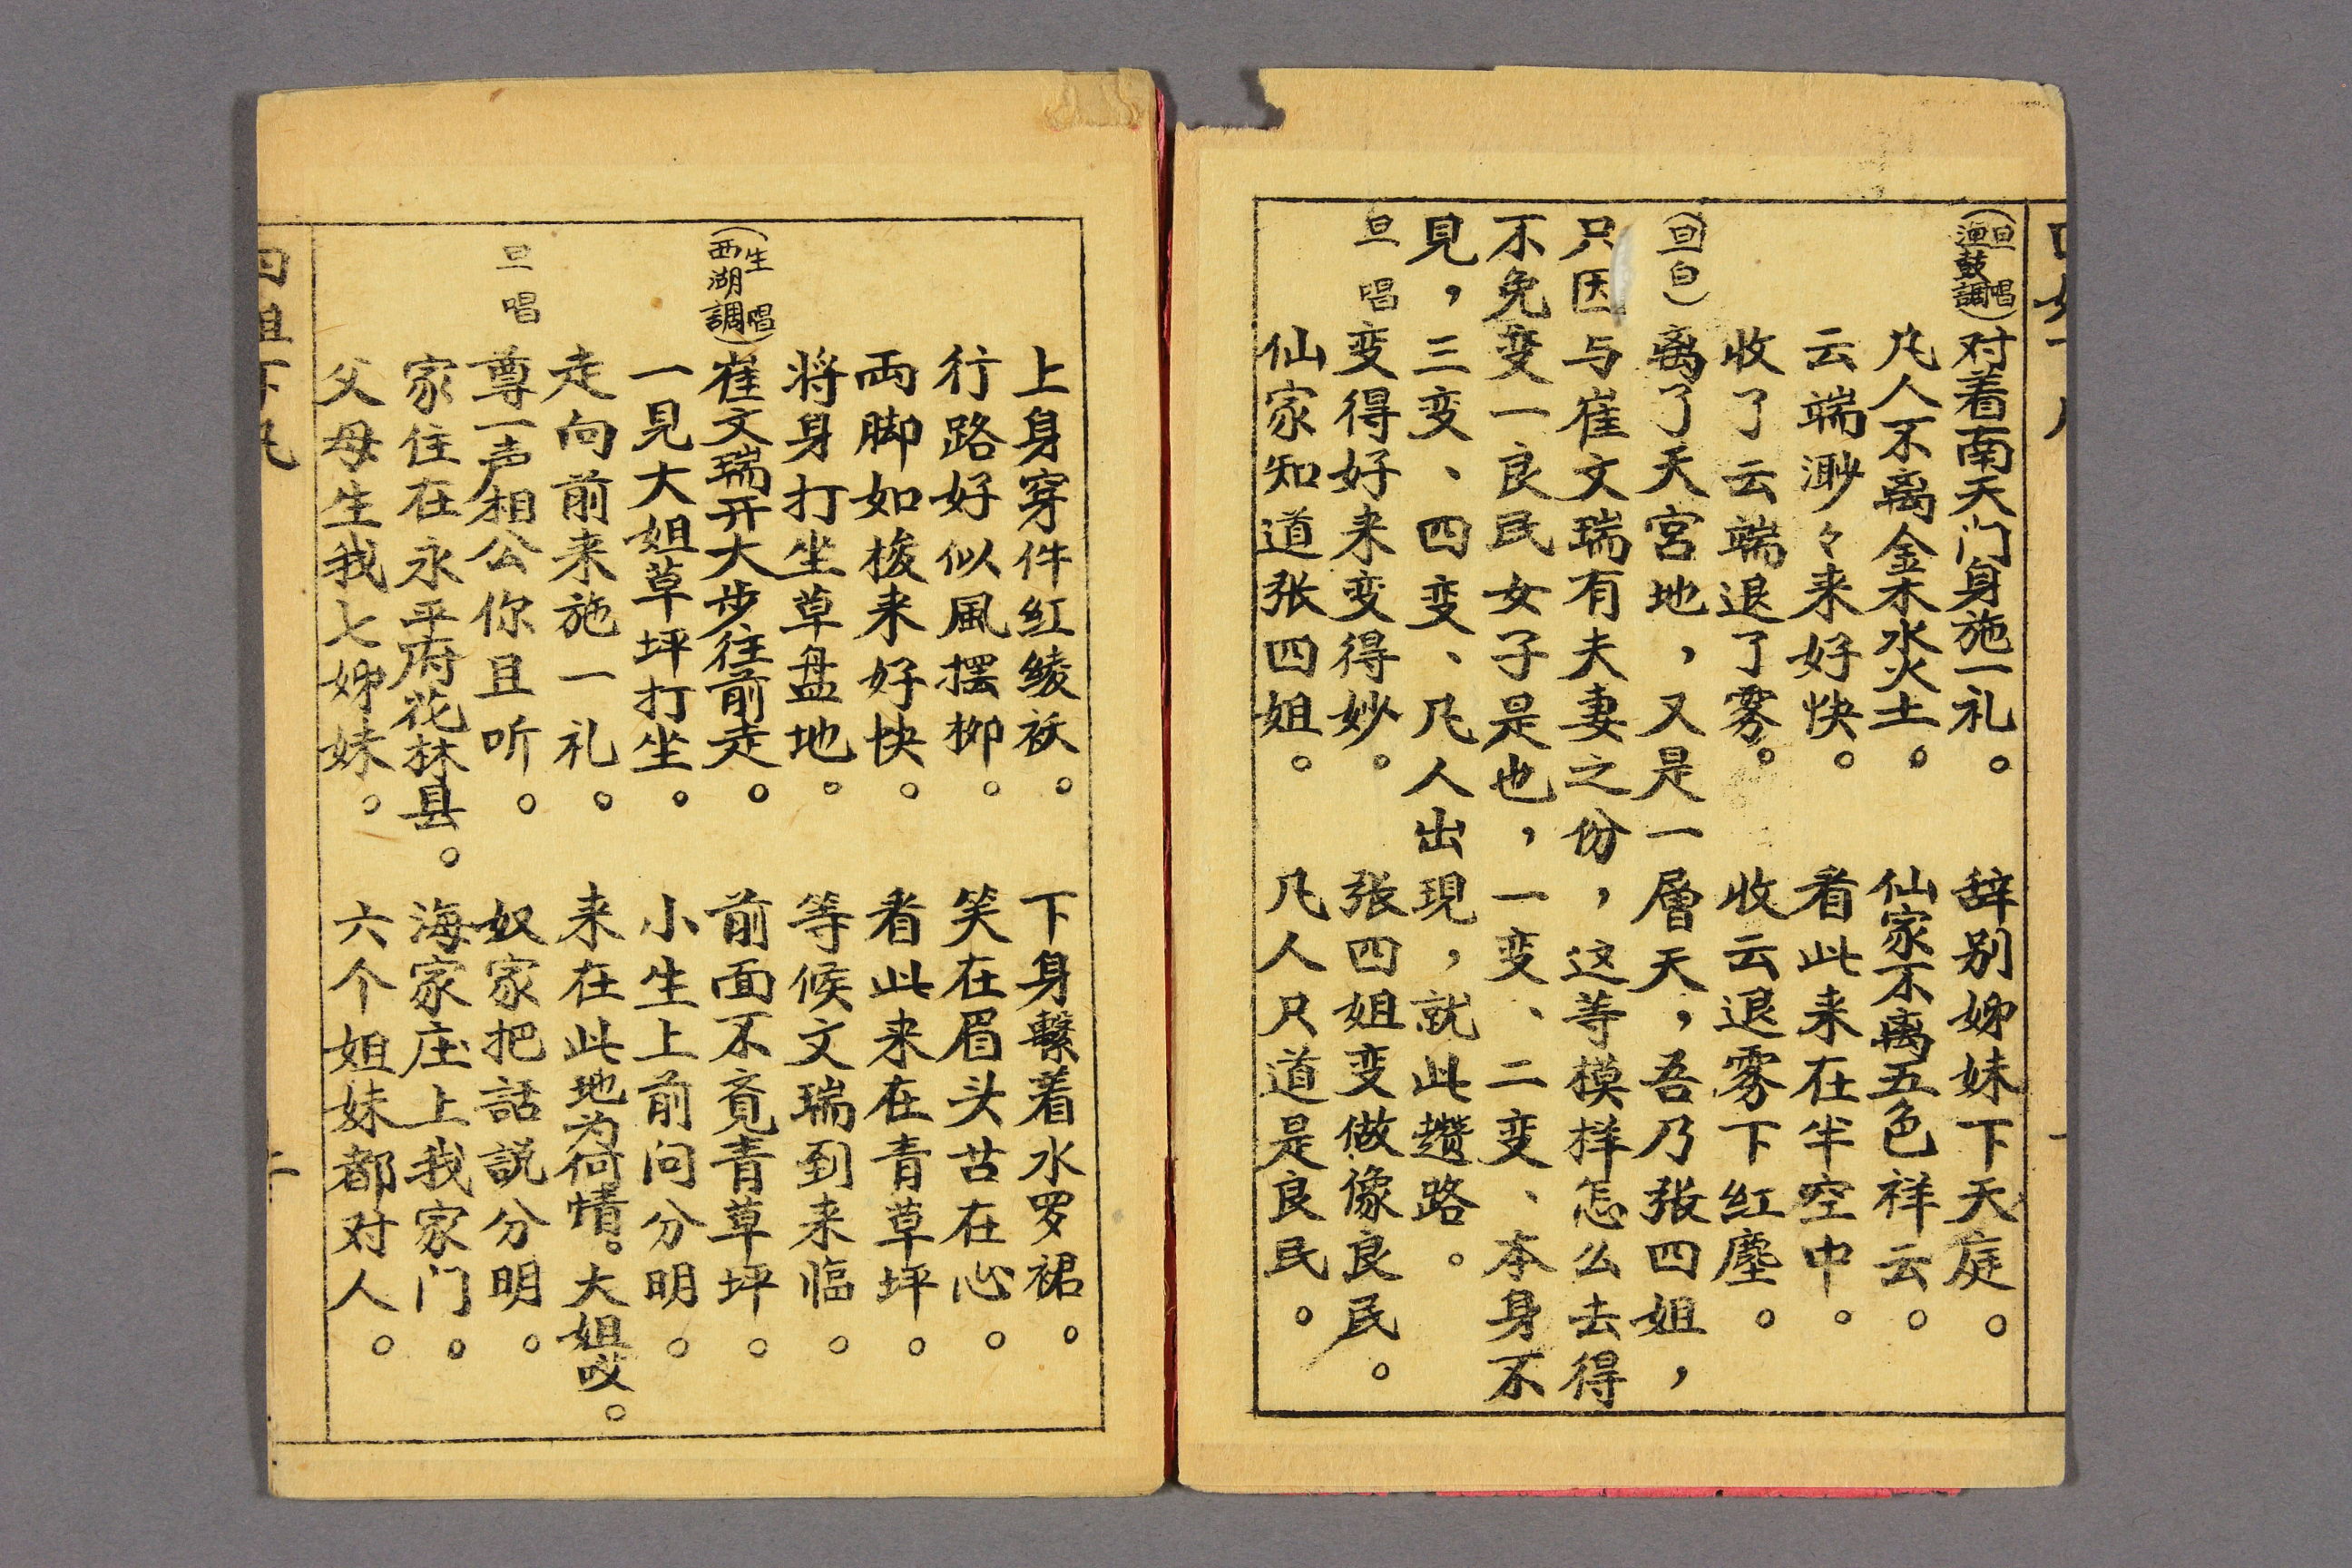 四姐下凡
(旦唱
漁鼓調)对着南天门身施一礼。辞别姊妹下天庭。
凡人不离金木水火土。仙家不离五色祥云。
云端渺々来好快。看此来在半空中。
收了云端退了雾。收云退雾下红塵。
(旦白)离了天宮地，又是一層天，吾乃张四姐，
只因与崔文瑞有夫妻之份，这等模样怎么去得
不免变一良民女子是也，一变、二变、本身不
見，三变、四变、凡人出現，就此趲路。
旦唱变得好来变得妙。张四姐变做像良民。
仙家知道张四姐。凡人只道是良民。
上身穿件红绫袄。下身繫着水罗裙。
行路好似風摆柳。笑在眉头苦在心。
両脚如梭来好快。看此来在青草坪。
将身打坐草盘地。等候文瑞到来临。
(生唱
西湖調)崔文瑞开大步往前走。前面不竟青草坪。
一見大姐草坪打坐。小生上前问分明。
走向前来施一礼。来在此地为何情。大姐哎。
旦唱尊一声相公你且听。奴家把話説分明。
家住在永平府花林县。海家庄上我家门。
父母生我七姊妹。六个姐妹都对人。
四姐下凡
二